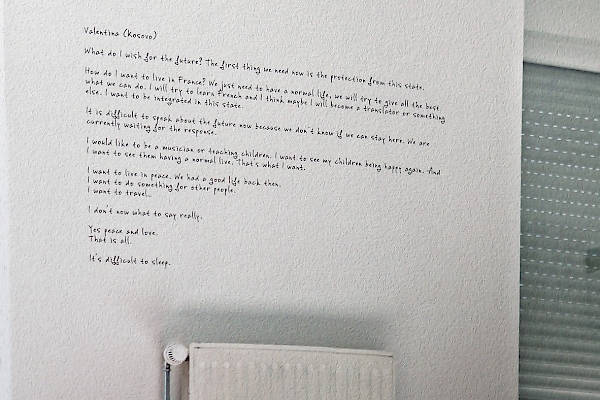 Valentina (Kosovo)
What do I wish for the future? The first thing we need now is the protection from this state.
How do I want to live in France? We just need to have a normal life, we will try to give all the best
what we can do. I will try to learn French and I think maybe I will become a translator or something
else. I want to be integrated in this state.
It is difficult to speak about the future now because we don't know if we can stay here. We are
currently waiting for the response.
I would like to be a musician or teaching children. I want to see my children being happy again. And
I want to see them having a normal live. That's what I want.
I want to live in peace. We had a good life back then.
I want to do something for other people.
I want to travel...
I don't now what to say really.
Yes peace and love.
That is all.
It's difficult to sleep.